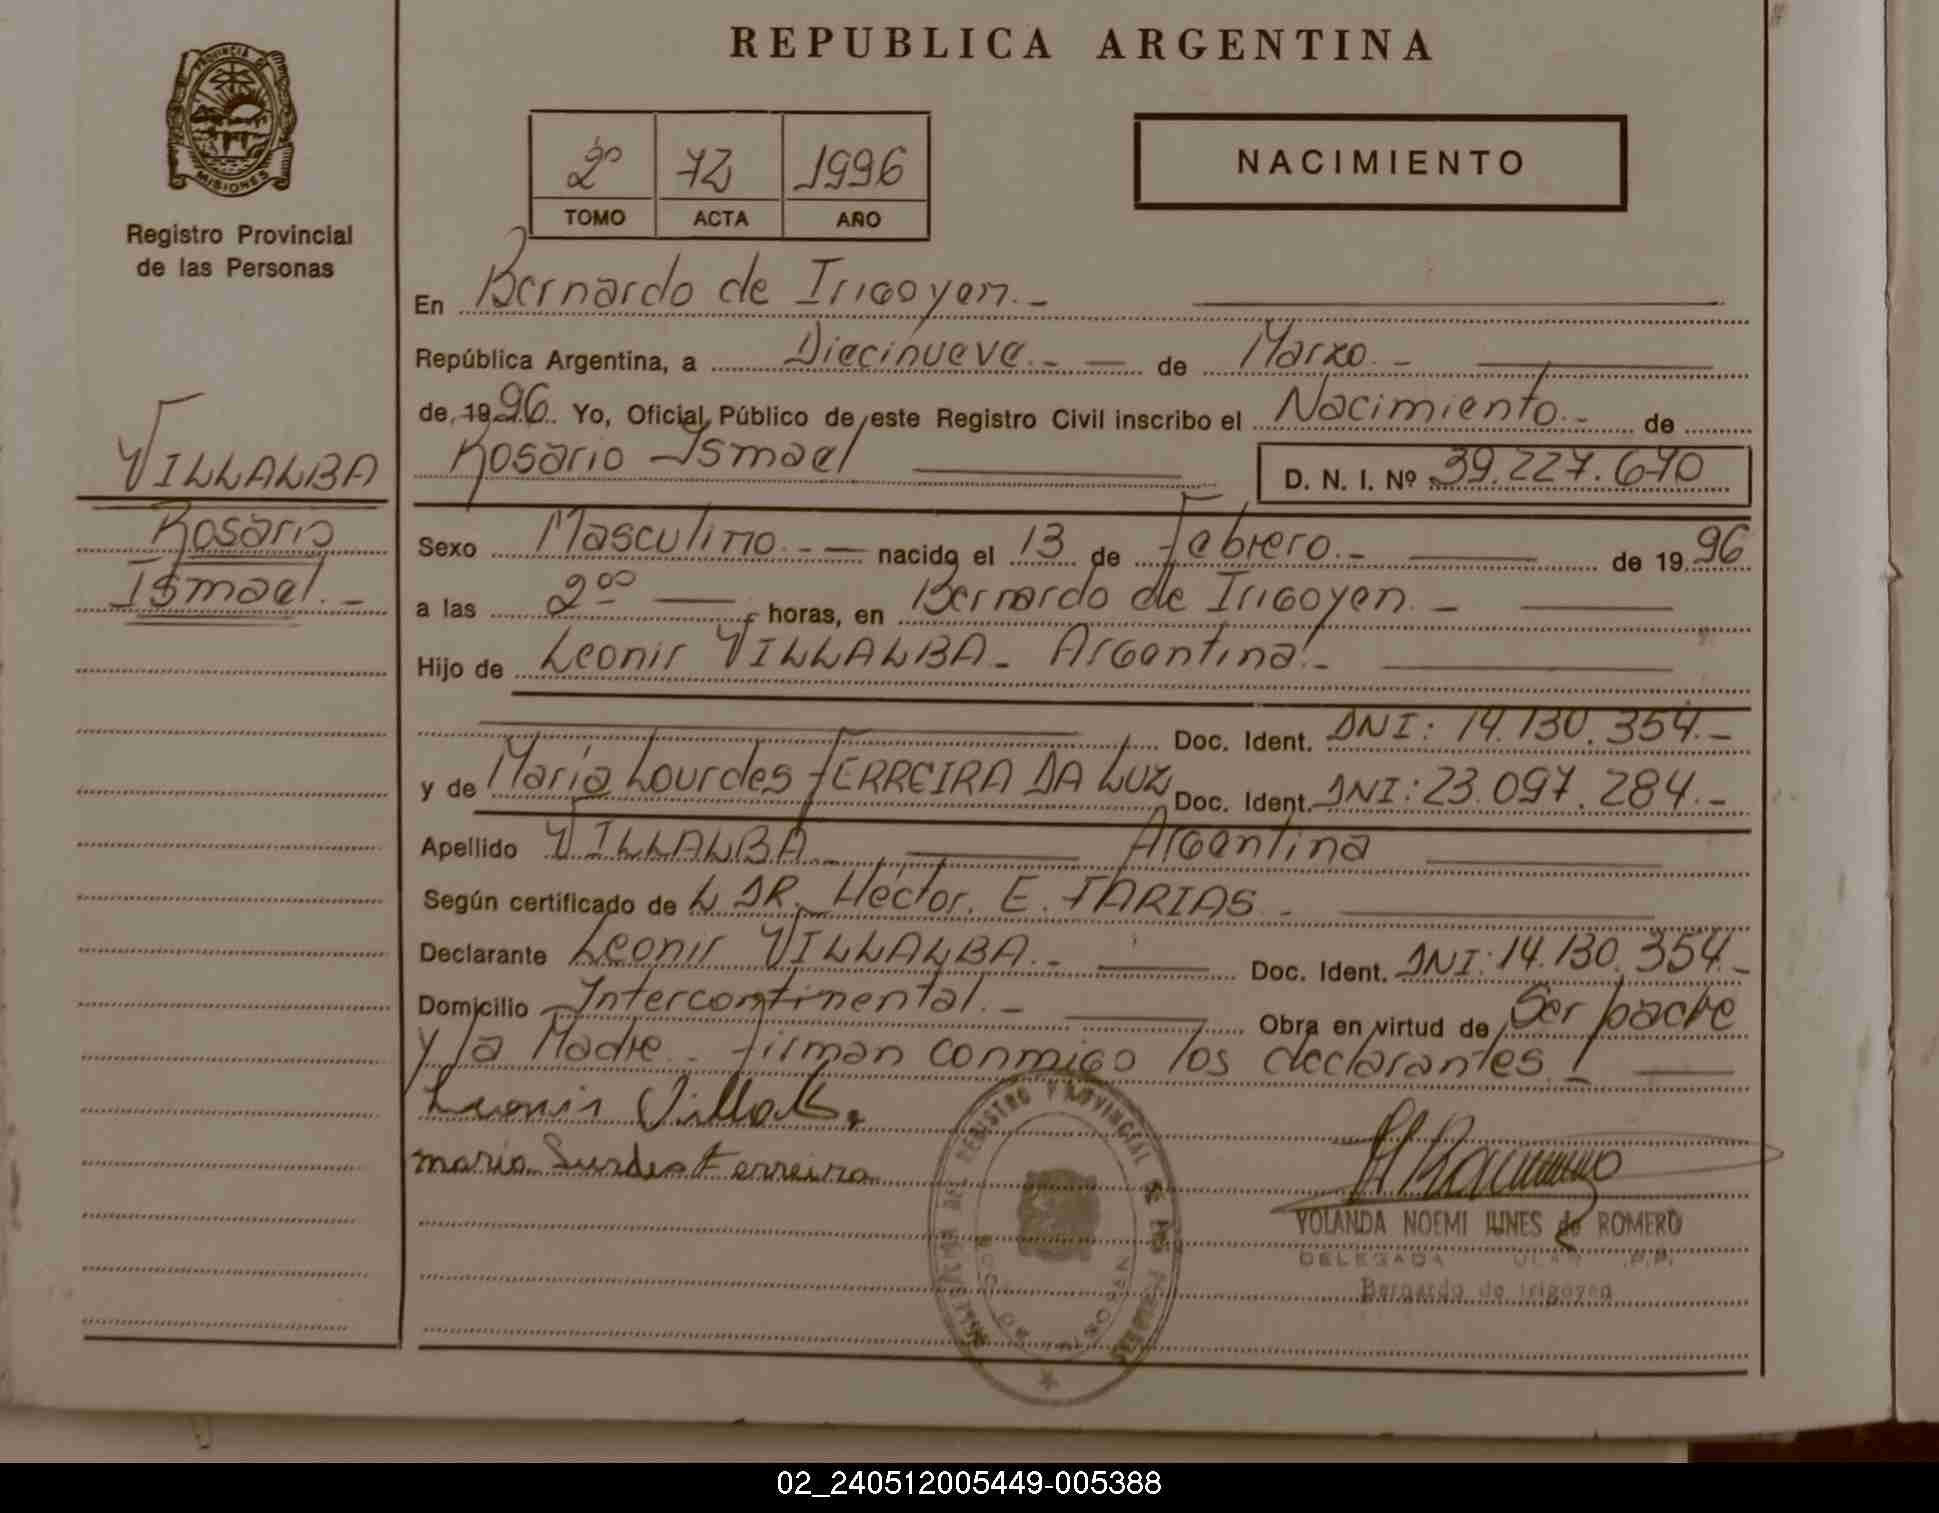 REPUBLICA ARGENTINA
PROVINCIA DE
MISIONES
Registro Provincial
de las Personas
2º 72 1996
TOMO ACTA AÑO
NACIMIENTO
VILLALBA
Rosario
Ismael.-
En Bernardo de Irigoyen.-
República Argentina, a Diecinueve.- de Marzo.-
de 1996. Yo, Oficial Público de este Registro Civil inscribo el Nacimiento.- de
Rosario Ismael D. N. I. Nº 39.227.670
Sexo Masculino.- nacido el 13 de Febrero.- de 1996
a las 2⁰⁰ horas, en Bernardo de Irigoyen.-
Hijo de Leonir VILLALBA.- Argentina.-
Doc. Ident. DNI: 14.130.354.-
y de María Lourdes FERREIRA DA LUZ Doc. Ident. DNI: 23.097.284.-
Apellido VILLALBA.- Argentina
Según certificado de L DR. Héctor. E. FARIAS.-
Declarante Leonir VILLALBA.- Doc. Ident. DNI: 14.130.354.-
Domicilio Intercontinental.- Obra en virtud de Ser padre
y la Madre.- firman conmigo los declarantes!
Leonir Villalba
maria Lurdes Ferreira
REGISTRO PROVINCIAL DE LAS PERSONAS
YOLANDA NOEMI IUNES de ROMERO
DELEGADA
Bernardo de Irigoyen
02_240512005449-005388